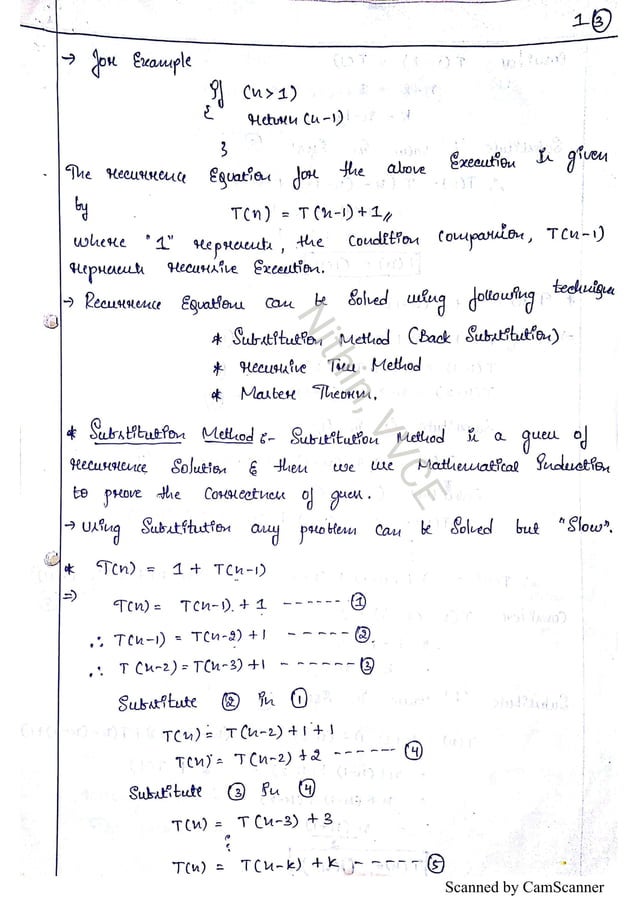 1③
→ For Example
If (n>1)
{ return (n-1)
}
The recurrence Equation for the above Execution is given
by T(n) = T(n-1)+1,,
where "1" represents, the condition comparsion, T(n-1)
represents recursive Execution.
→ Recurrence Equations can be solved using following technique
* Substitution Method (Back Substitution)
* recursive Tree Method
* Master Theorm.
* Substitution Method :- Substitution Method is a guess of
recurrence solution & then we use Mathematical Induction
to prove the correctness of guess.
→ using Substitution any problem can be solved but "Slow".
* T(n) = 1 + T(n-1)
⇒ T(n) = T(n-1) + 1 ------ ①
∴ T(n-1) = T(n-2) + 1 ----- ②
∴ T(n-2) = T(n-3) +1 ------ ③
Substitute ② in ①
T(n) = T(n-2) + 1 + 1
T(n) = T(n-2) + 2 ------ ④
Substitute ③ in ④
T(n) = T(n-3) + 3
⋮
T(n) = T(n-k) + k ----- ⑤
Nithin, VVCE
Scanned by CamScanner